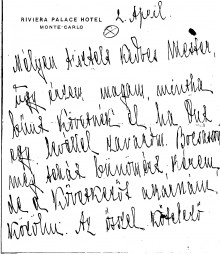 RIVIERA PALACE HOTEL
MONTE-CARLO
2. April.
Mélyen tisztelt kedves Mester,
Úgy érzem magam, mintha
bűnt követnék el, ha Önt
egy levéllel zavarom. Bocsásson
meg tehát bűnömért, kérem,
de a következőt akarnám
közölni. Az őszi